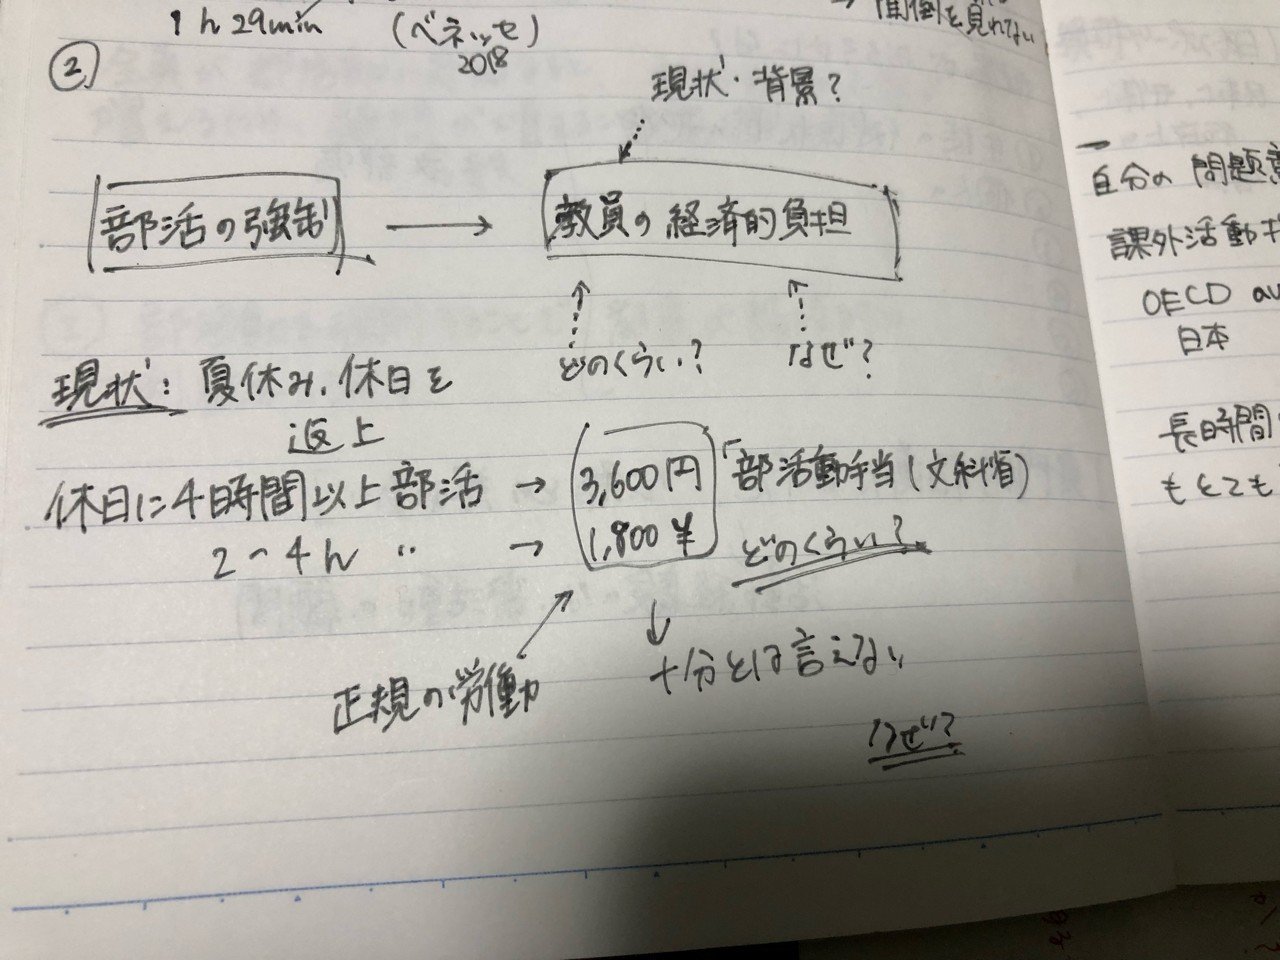 1h 29min (ベネッセ)
2018
→ 面倒を見れない
②
現状・背景?
部活の強制 → 教員の経済的負担
どのくらい? なぜ?
現状: 夏休み、休日を
返上
休日に4時間以上部活 → 3,600円 「部活動手当(文科省)
2〜4h 〃 → 1,800¥ どのくらい?
↓
正規の労働 十分とは言えない
なぜ?
自分の問題意
課外活動
OECD av
日本
長時間
もとても